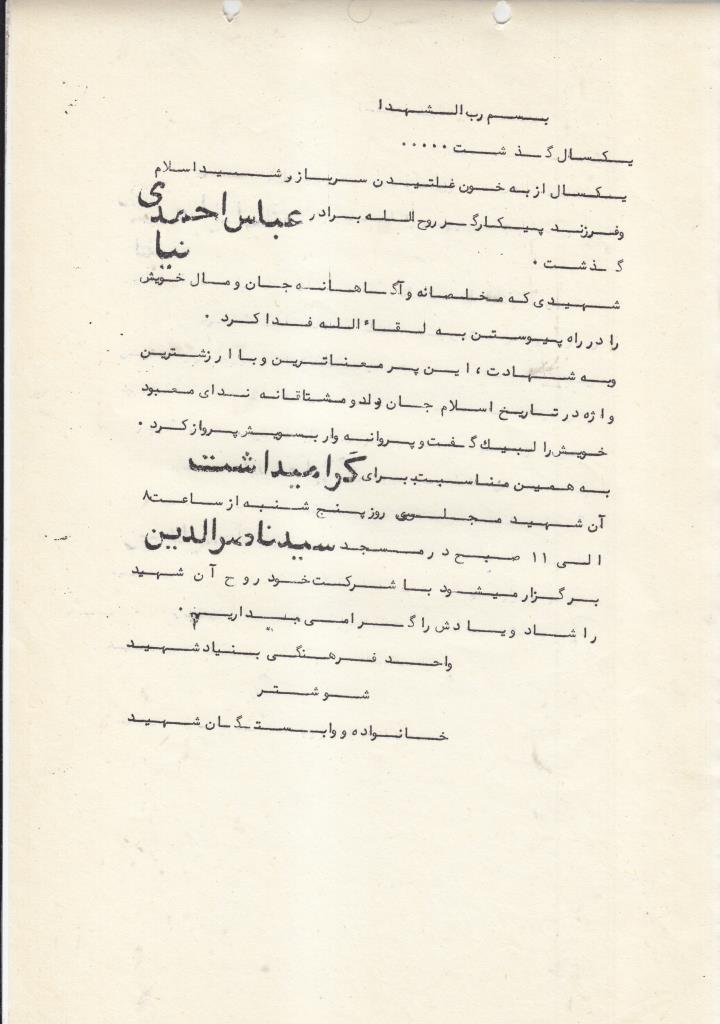 بسم رب الشهدا
یکسال گذشت .....
یکسال از به خون غلتیدن سرباز رشید اسلام
وفرزند پیکارگر روح الله برادر عباس احمدی
نیا
گذشت .
شهیدی که مخلصانه و آگاهانه جان و مال خویش
را در راه پیوستن به لقاء الله فدا کرد .
وبه شهادت ، این پر معناترین و با ارزشترین
واژه در تاریخ اسلام جان ولد و مشتاقانه ندای معبود
خویش را لبیک گفت و پروانه وار بسویش پرواز کرد .
به همین مناسبت برای گرامیداشت
آن شهید مجلسی روز پنج شنبه از ساعت ۸
الی ۱۱ صبح در مسجد سیدناصرالدین
برگزار میشود با شرکت خود روح آن شهید
را شاد و یادش را گرامی میداریم .
واحد فرهنگی بنیاد شهید
شوشتر
خانواده و وابستگان شهید